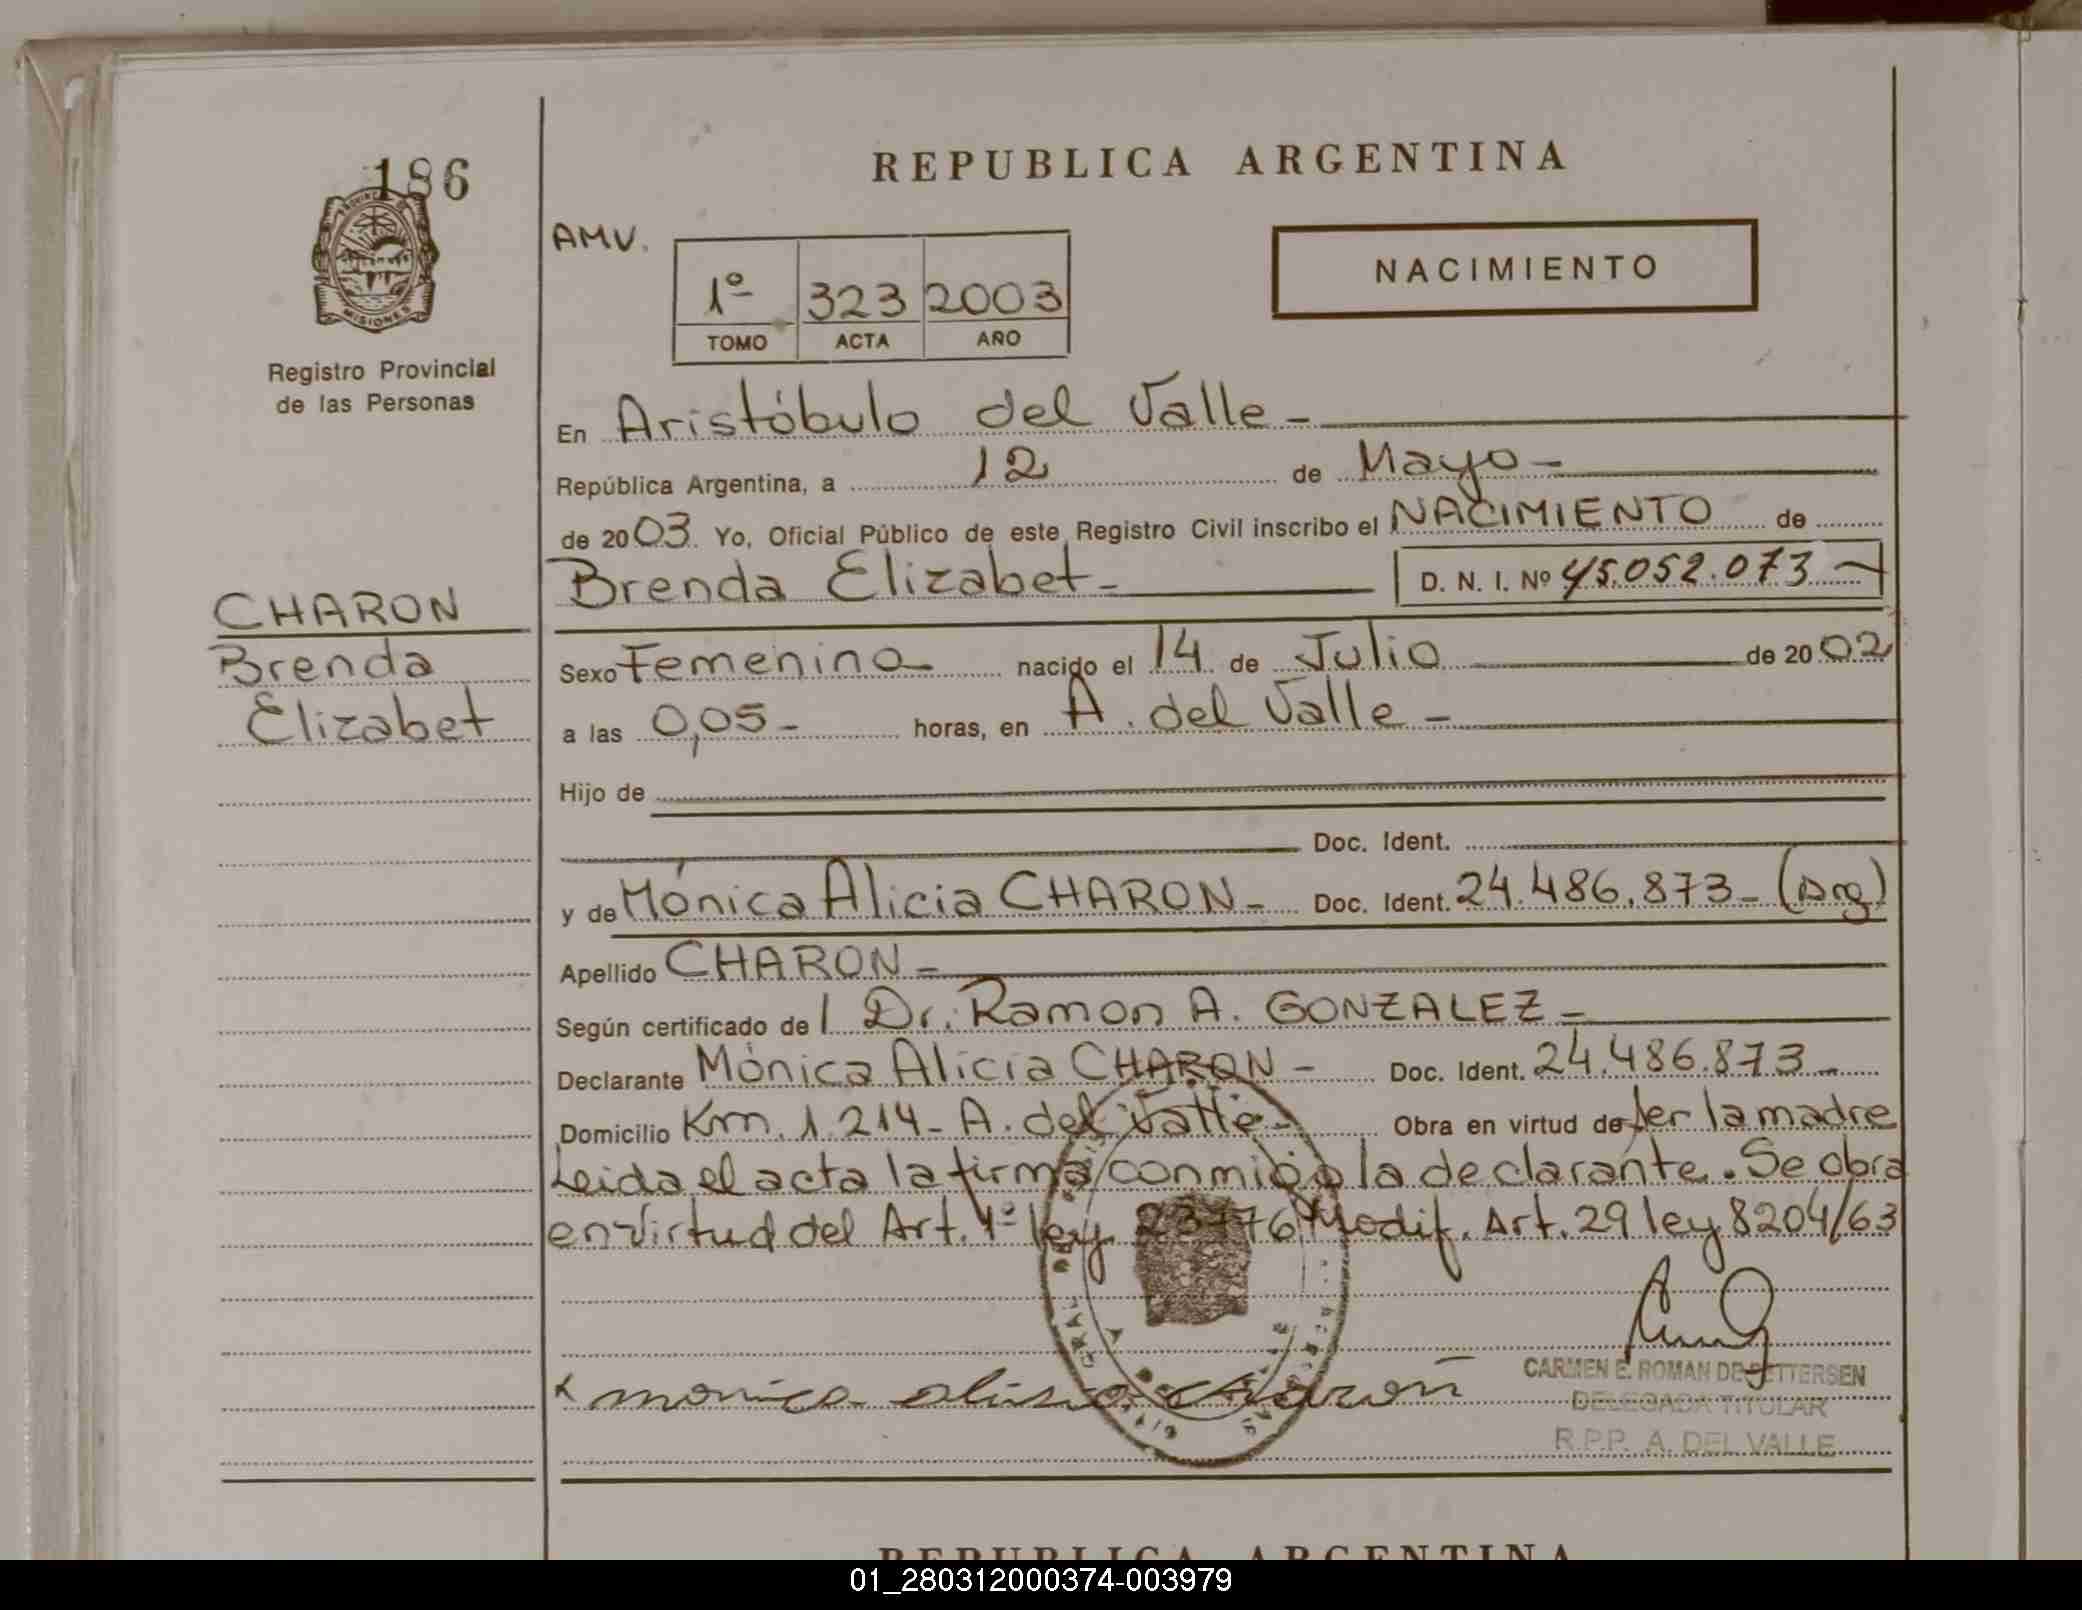 186
REPUBLICA ARGENTINA
PROVINCIA DE
MISIONES
Registro Provincial
de las Personas
AMV.
1º 323 2003
TOMO ACTA AÑO
NACIMIENTO
En Aristóbulo del Valle -
República Argentina, a 12 de Mayo -
de 2003. Yo, Oficial Público de este Registro Civil inscribo el NACIMIENTO de
Brenda Elizabet - D. N. I. Nº 45.052.073
CHARON
Brenda
Elizabet
Sexo Femenino nacido el 14 de Julio de 2002
a las 0,05 - horas, en A. del Valle -
Hijo de
Doc. Ident.
y de Mónica Alicia CHARON - Doc. Ident. 24.486.873 - (Arg)
Apellido CHARON -
Según certificado de l Dr. Ramon A. GONZALEZ -
Declarante Mónica Alicia CHARON - Doc. Ident. 24.486.873 -
Domicilio Km. 1.214 - A. del Valle - Obra en virtud de ser la madre
Leida el acta la firma conmigo la declarante. Se obra
en virtud del Art. 1º ley 23776 Modif. Art. 29 ley 8204/63
x monica alisia charon
CARMEN E. ROMAN DE PETTERSEN
DELEGADA TITULAR
R.P.P. A. DEL VALLE
REPUBLICA ARGENTINA
01_280312000374-003979